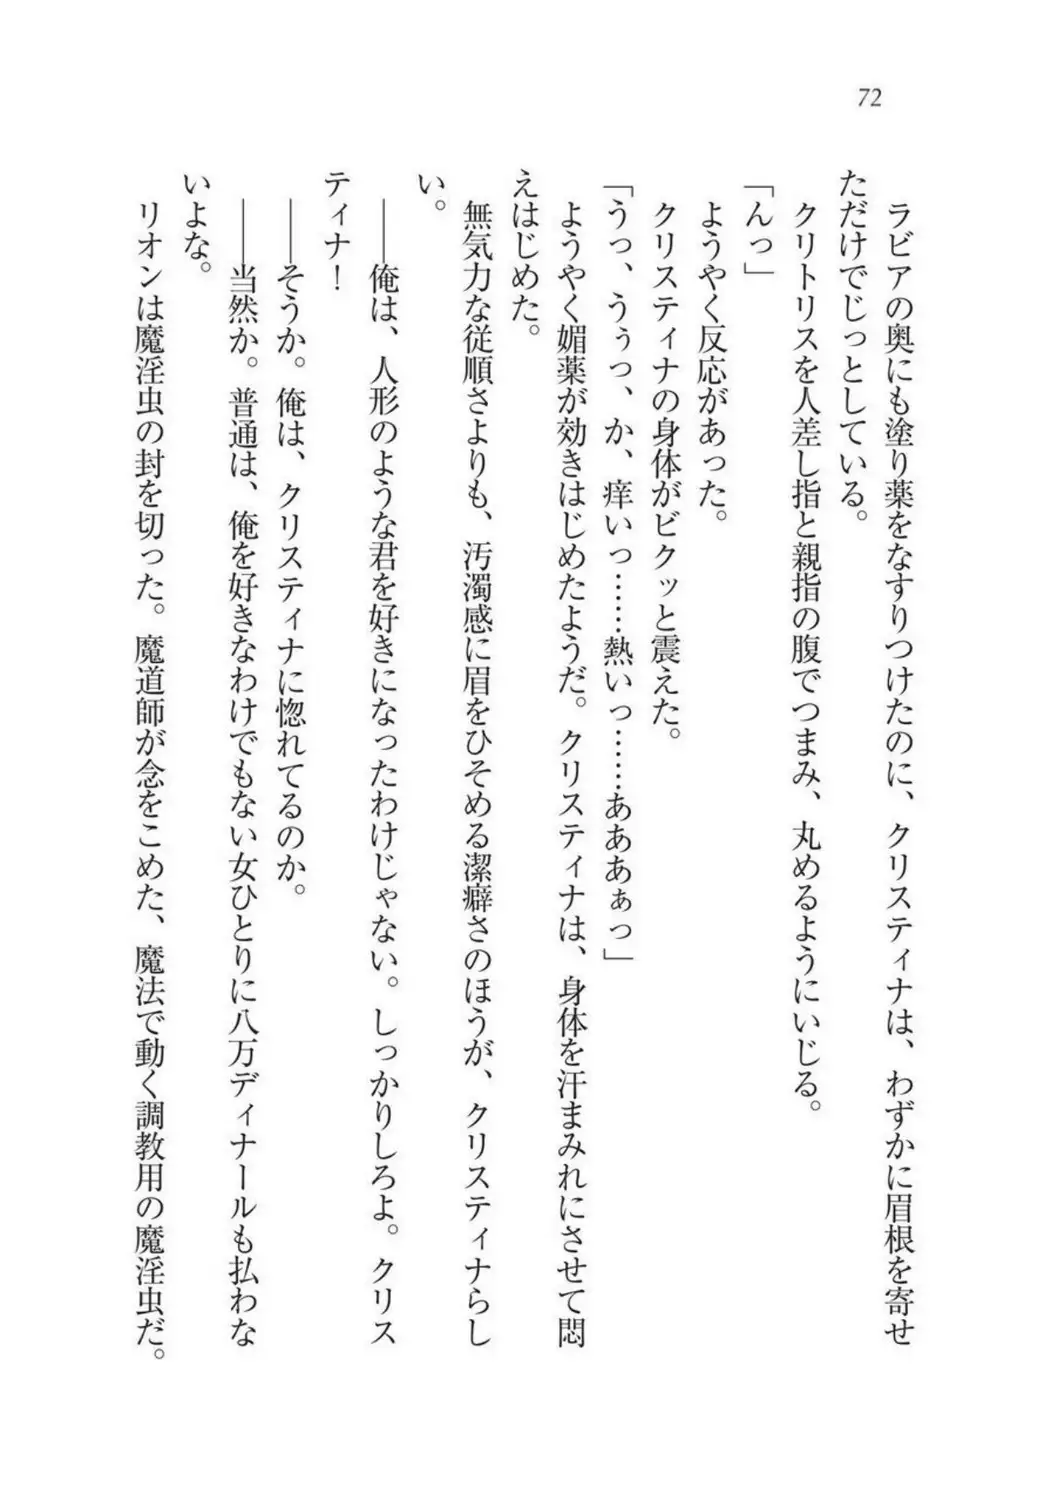 72
ラビアの奥にも塗り薬をなすりつけたのに、クリスティナは、わずかに眉根を寄せ
ただけでじっとしている。
クリトリスを人差し指と親指の腹でつまみ、丸めるようにいじる。
「んっ」
ようやく反応があった。
クリスティナの身体がビクッと震えた。
「うっ、うぅっ、か、痒いっ……熱いっ……あああぁっ」
ようやく媚薬が効きはじめたようだ。クリスティナは、身体を汗まみれにさせて悶
えはじめた。
無気力な従順さよりも、汚濁感に眉をひそめる潔癖さのほうが、クリスティナらし
い。
――俺は、人形のような君を好きになったわけじゃない。しっかりしろよ。クリス
ティナ！
――そうか。俺は、クリスティナに惚れてるのか。
――当然か。普通は、俺を好きなわけでもない女ひとりに八万ディナールも払わな
いよな。
リオンは魔淫虫の封を切った。魔道師が念をこめた、魔法で動く調教用の魔淫虫だ。